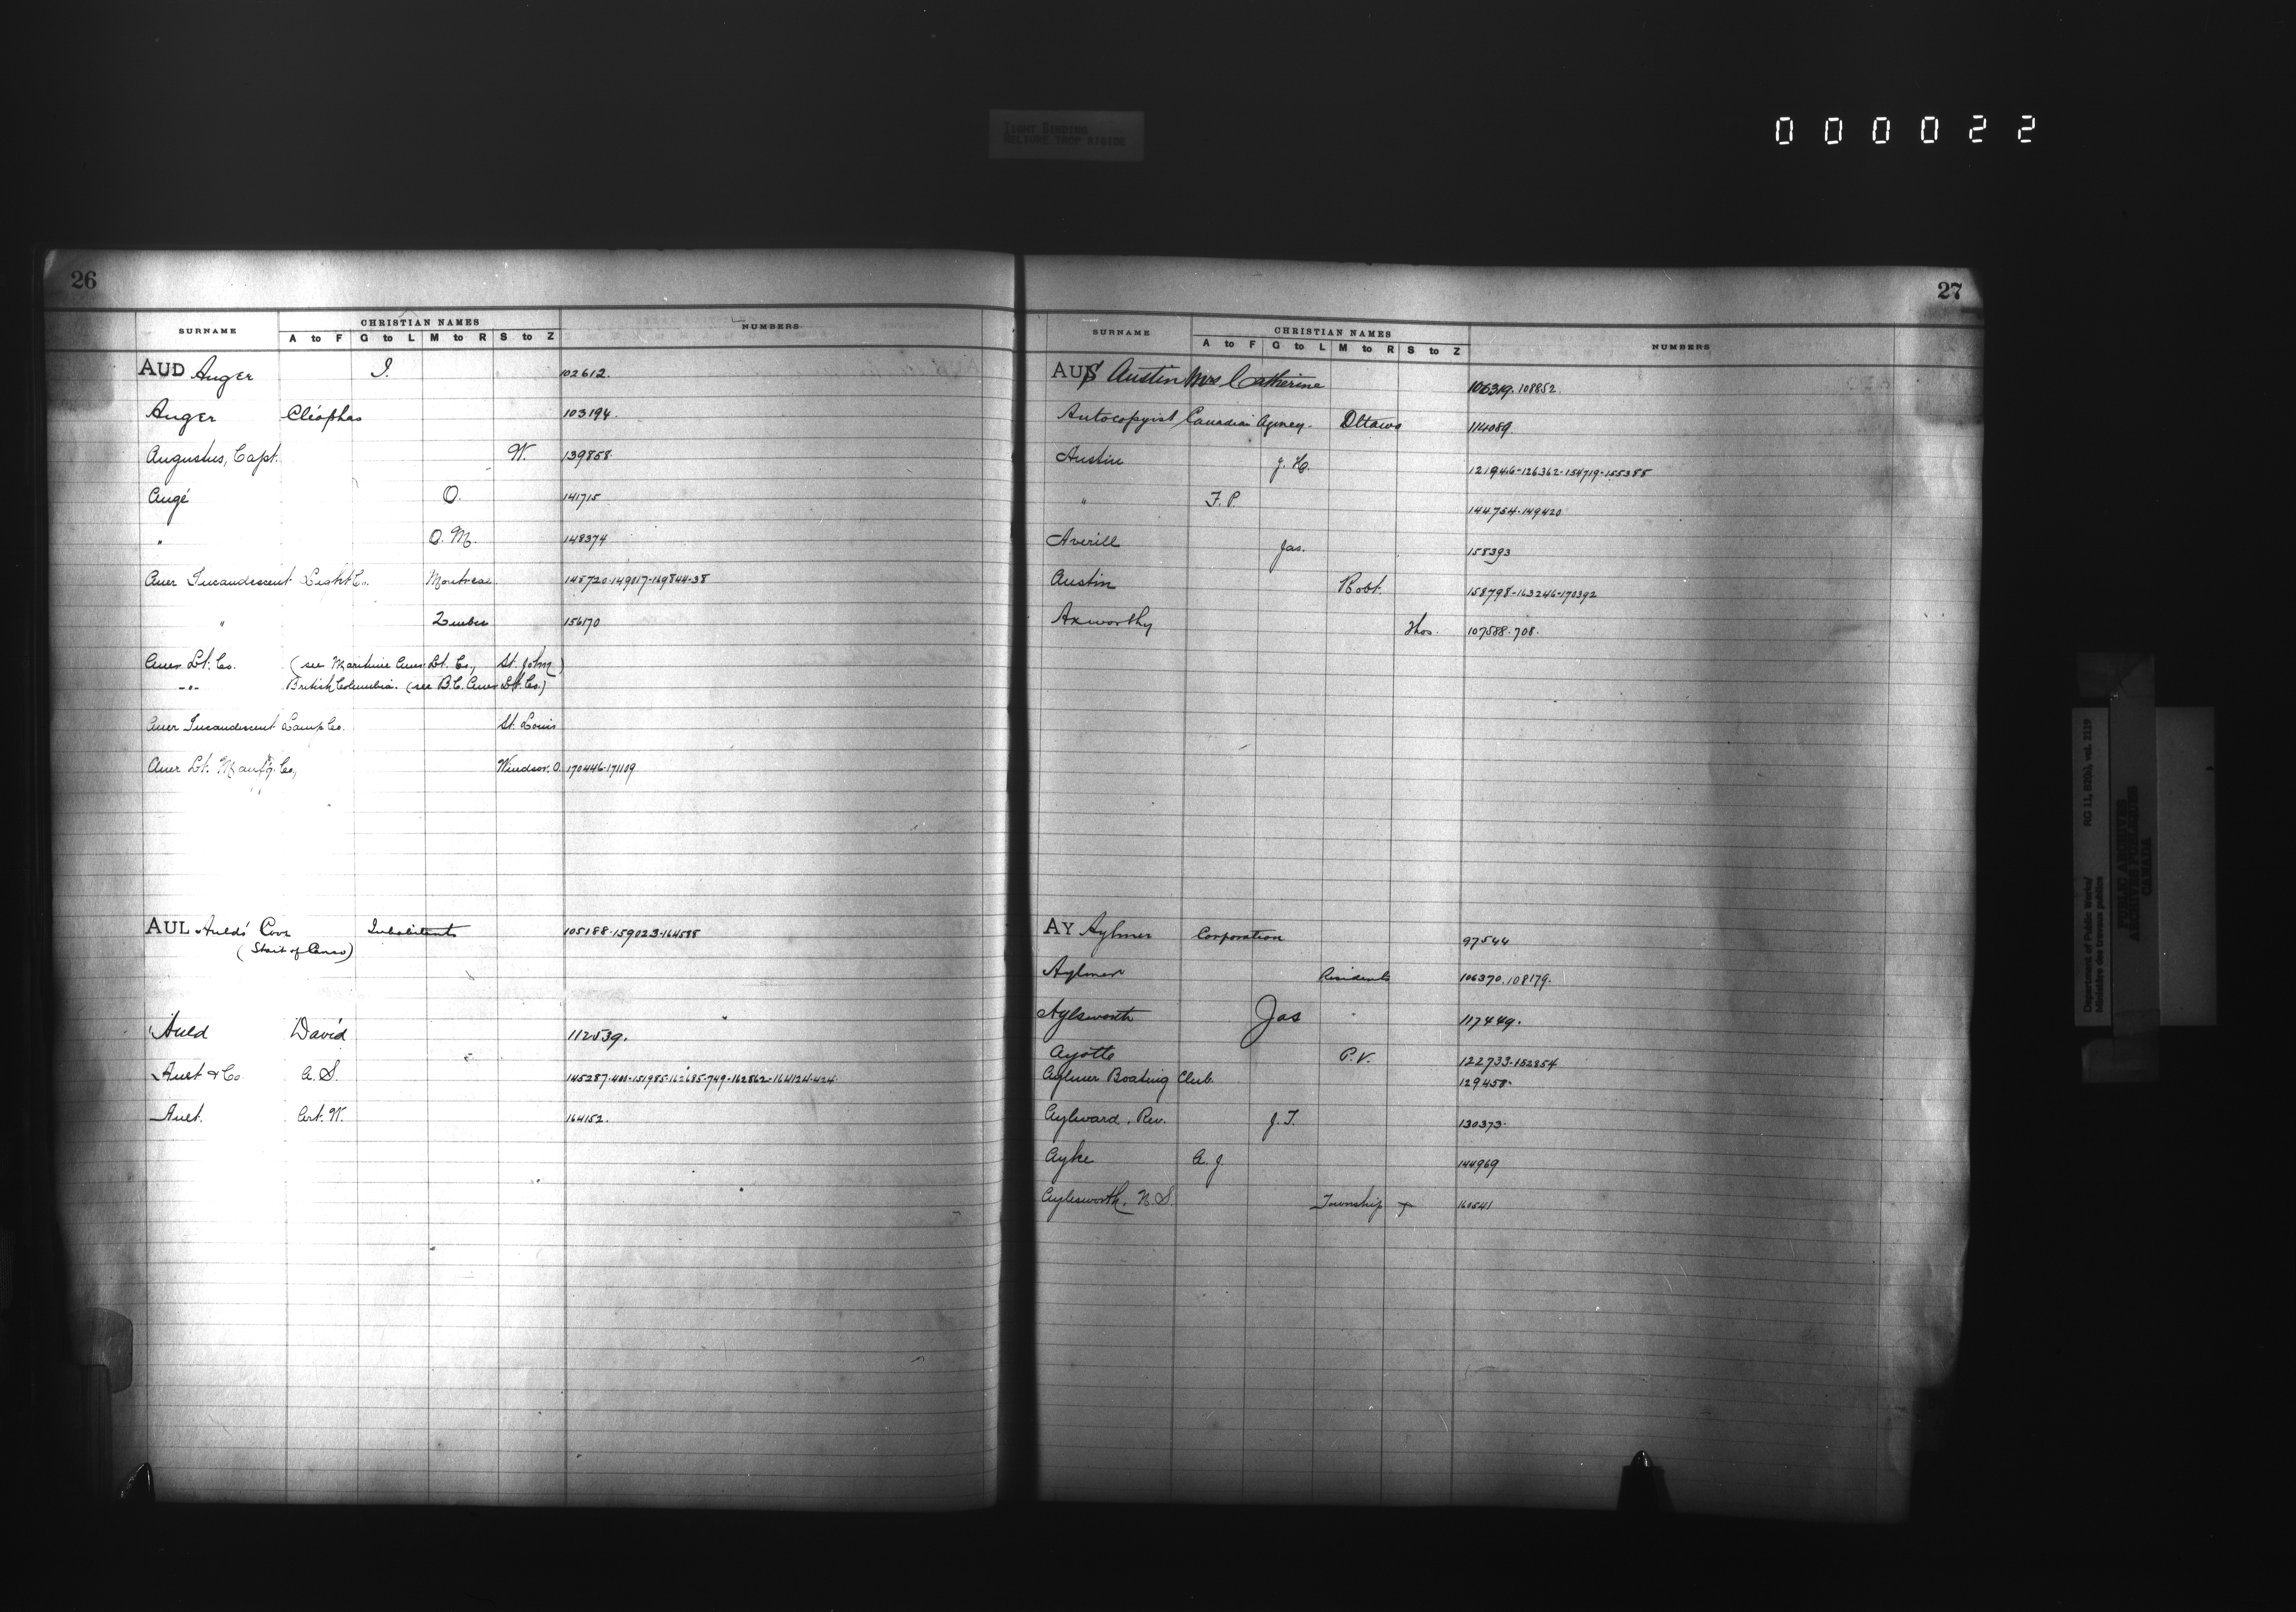 TIGHT BINDING
RELIURE TROP RIGIDE
000022
26
SURNAME CHRISTIAN NAMES NUMBERS
A to F G to L M to R S to Z
AUD Auger I. 102612.
Auger Cléophas 103194.
Augustus, Capt. W. 139858.
Augé O. 141715
" O. M. 148374
Auer Incandescent Light Co. Montreal 148720-149017-169844-38
" Quebec 156170
Auer Lt. Co. (see Maritime Auer Lt. Co., St. John)
-"- British Columbia. (see B.C. Auer Lt. Co.)
Auer Incandescent Lamp Co. St. Louis
Auer Lt. Manf'g. Co., Windsor, O. 170446-171109
AUL Aulds' Cove Inhabitants 105188-159023-164585
(Strait of Canso)
Auld David 112539.
Ault & Co. A. S. 145287-401-151985-162685-749-162862-164124-424
Ault. Art. W. 164152.
27
SURNAME CHRISTIAN NAMES NUMBERS
A to F G to L M to R S to Z
AUS Austin Mrs Catherine 106319. 108852.
Autocopyist Canadian Agency. Ottawa 114089.
Austin J. H. 121946-126362-154719-155388
" F. P. 144754-149420
Averill Jas. 158393
Austin Robt. 158798-163246-170392
Axworthy Thos. 107588-708.
AY Aylmer Corporation 97544
Aylmer Residents 106370. 108179.
Aylsworth Jas 117449.
Ayotte P. V. 122733-152854
Aylmer Boating Club. 129458-
Aylward, Rev. J. T. 130373-
Ayke A. J. 144969
Aylesworth, N. S. Township 160541
Department of Public Works/
Ministère des travaux publics
RG 11, B2(b), vol. 2119
PUBLIC ARCHIVES
ARCHIVES PUBLIQUES
CANADA